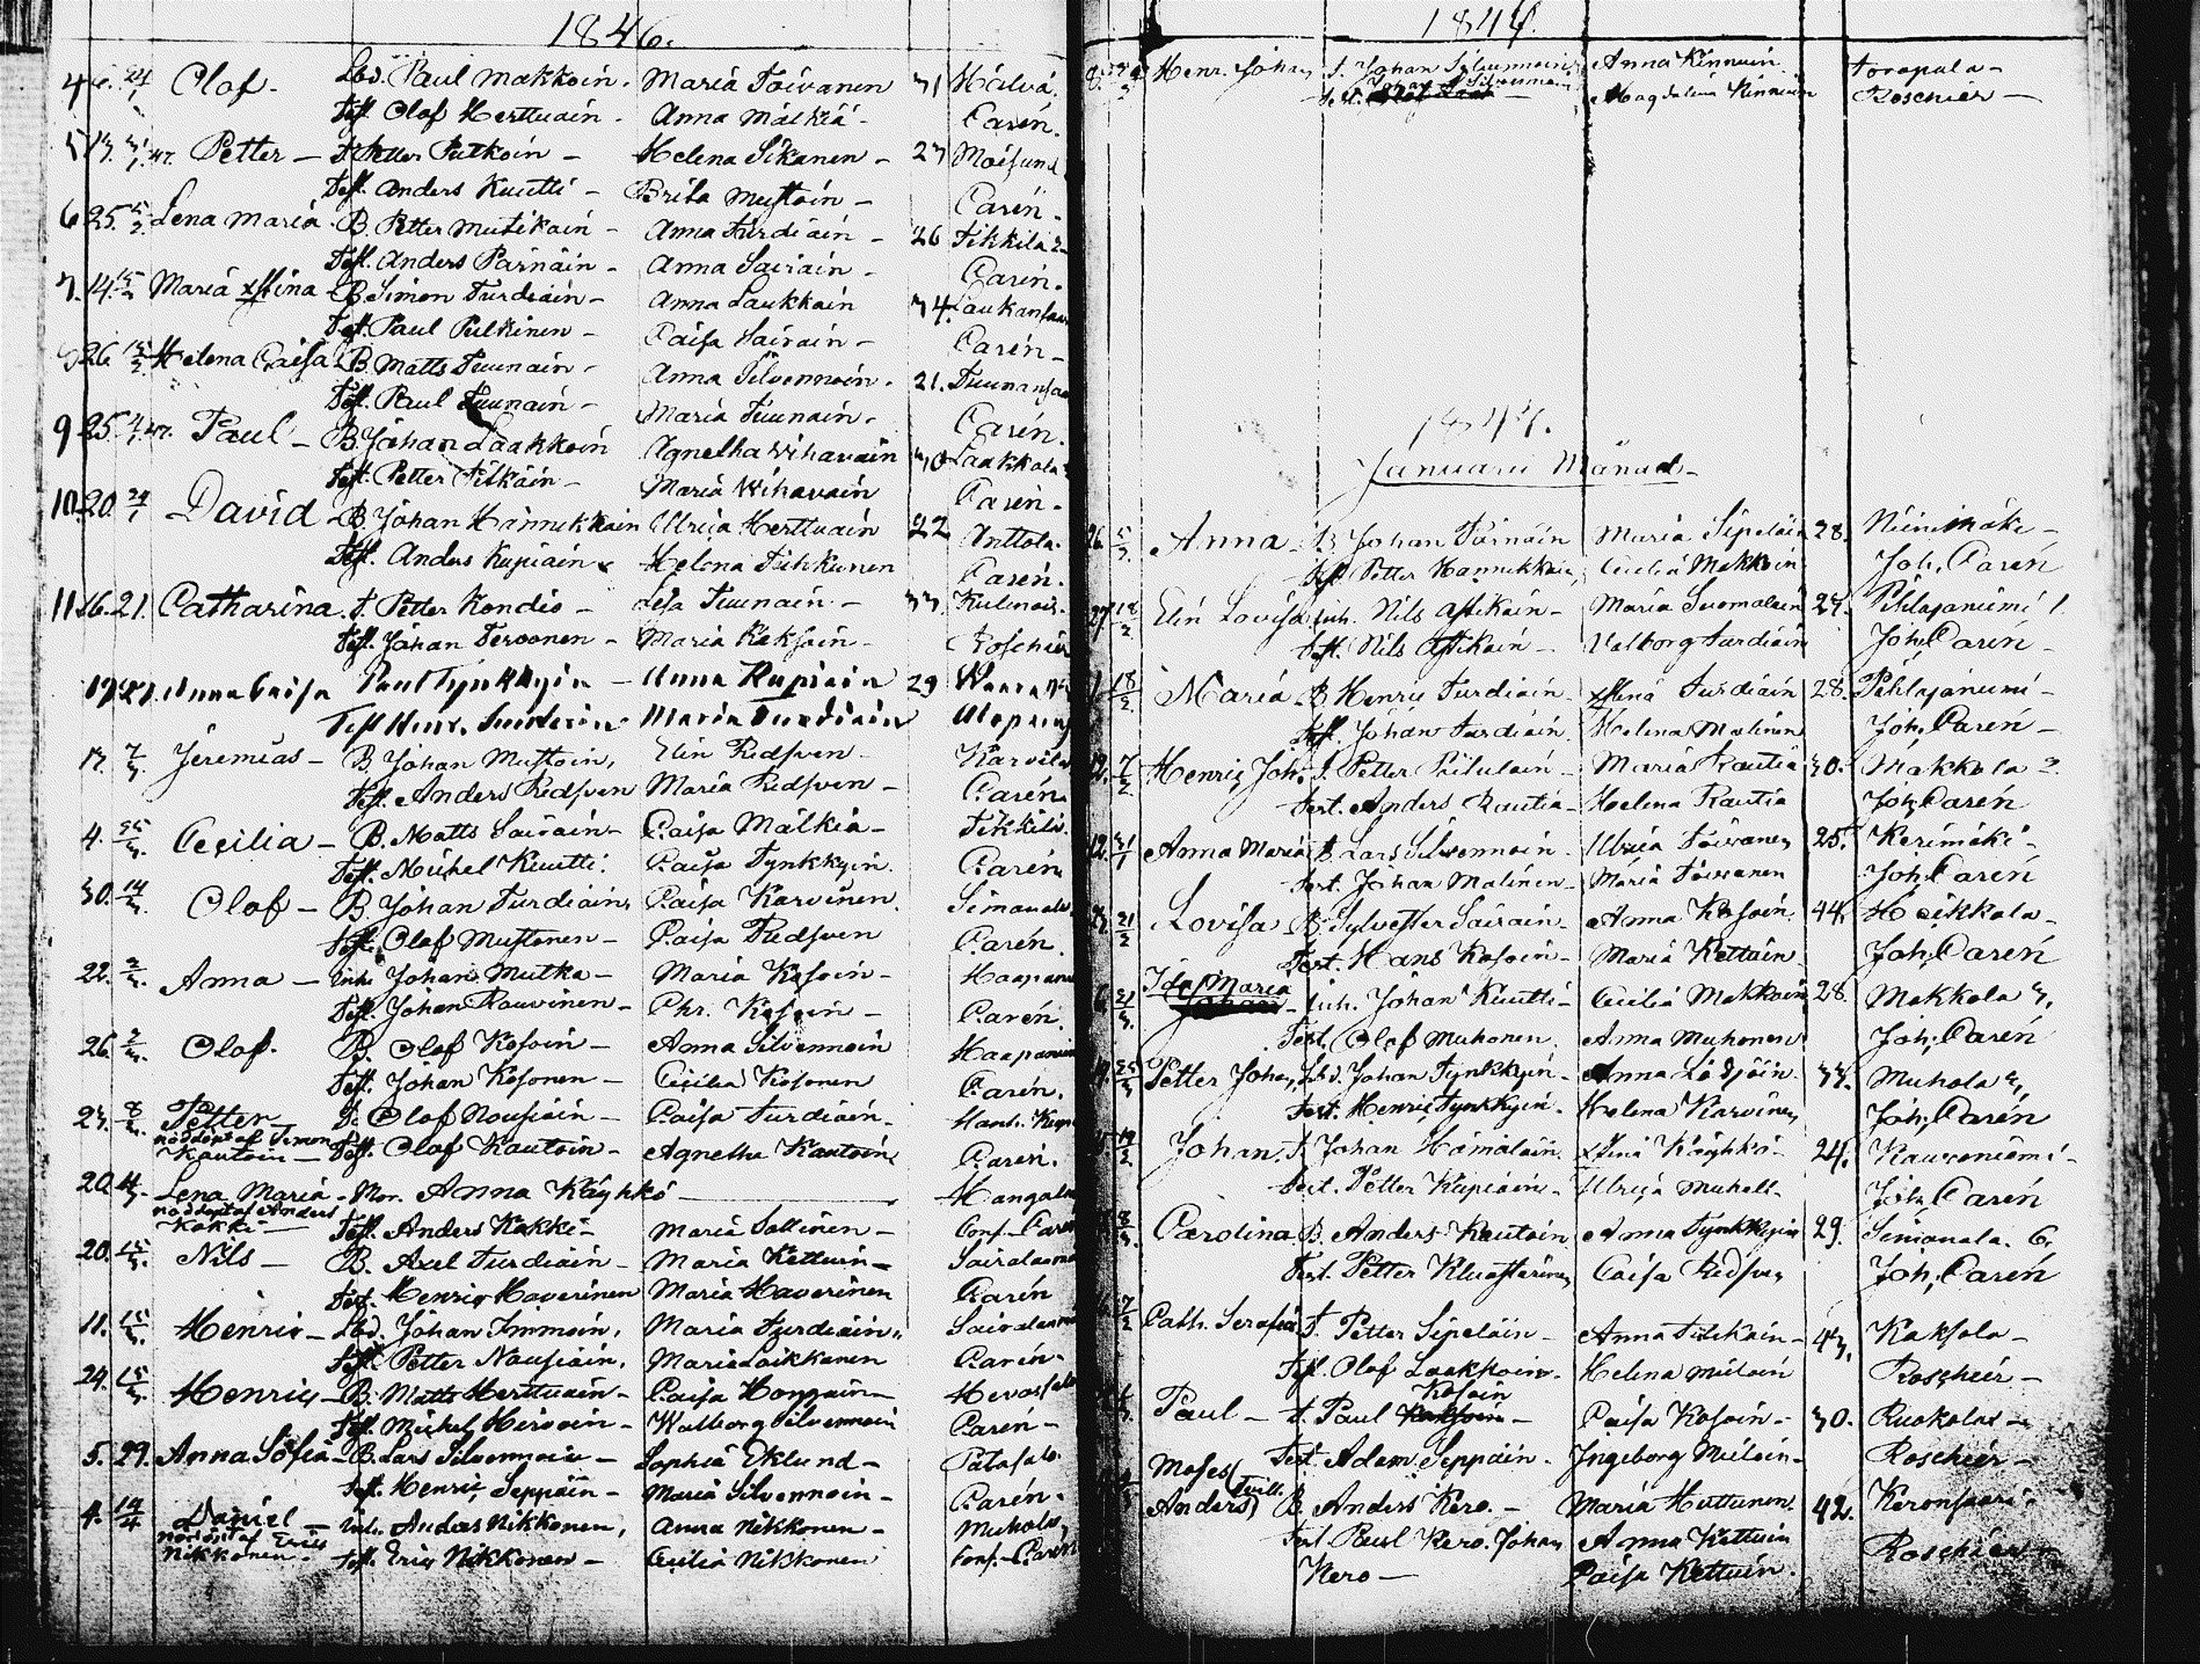 1846.
Olof. Lbd. Paul Makkoin. Maria Toivanen 31 Hälvä.
Test. Olof Herttuain - Anna Mälkiä - Carén.
Petter - Petter Putkoin - Helena Sikanen - 23
Test. Anders Kuutti - Brita Mustoin - Carén -
6 25. Lena Maria. B. Petter Mutikain - Anna Turdiain - 26 Tikkila 2
Test. Anders Parnain - Anna Sairain - Carén.
7. 14. Maria Xstina - B. Simon Turdiain - Anna Laukkain 34.
Test. Paul Pulkinen - Caisa Sairain - Carén -
26. Helena Caisa B. Matts Tuunain - Anna Silvennoin. 21.
Test. Paul Tuunain - Maria Tuunain - Carén.
9 25. Paul - B. Johan Laakkoin Agnetha Wihavain 30 Laakkola
Test. Petter Pitkäin - Maria Wihavain Carén -
10. 20. 24/1 David - B. Johan Hannukkain Ulrica Herttuain 22 Anttola.
Test. Anders Kupiain Helena Tiihkunen Carén.
11. 16. 21. Catharina. T. Petter Kondio - Lesa Tuunain - 33
Test. Johan Tervonen - Maria Kaksoin - Roschier
Anna Caisa Paul Tynkkyin - Anna Kupiain 29
Test. Henr. Maria Turdiain
7/3. Jeremias - B. Johan Mustoin, Elin Redsven - Karvila
Test. Anders Redsven Maria Redsven - Carén
4. Cecilia - B. Matts Sairain - Caisa Mälkiä - Tikkila.
Test. Michel Kuutti. Caisa Tynkkyin. Carén
30. 14/3. Olof - B. Johan Turdiain, Caisa Karvinen. Simanala
Test. Olof Mustonen - Caisa Redsven Carén.
22. Anna - Inh. Johan Mutka - Maria Kosoin -
Test. Johan Rauvinen - Chr. Kosoin - Carén.
26. Olof. B. Olof Kosoin - Anna Silvennoin
Test. Johan Kosonen - Cecilia Kosonen Carén.
23. 8/3. Petter - Olof Nousiain - Caisa Turdiain -
nöddöpt af Simon
Kautoin - Test. Olof Kautoin - Agnetha Kautoin Carén.
20. Lena Maria - Mor. Anna Käyhkö -
nöddöpt af Anders
Kokki - Test. Anders Kokki - Maria Sallinen - Conf. - Carén
20. 15/3. Nils - B. Axel Turdiain - Maria Kettuin -
Test. Henric Haverinen Maria Haverinen Carén
11. 15/3. Henric - Lbd. Johan Immoin, Maria Turdiain
Test. Petter Nousiain, Maria Loikkanen Carén -
24. 15/3. Henric - B. Matts Herttuain - Caisa Hongain -
Test. Michel Hirvoin - Walborg Silvennoin Carén -
5. 29. Anna Sofia - B. Lars Silvennoin - Sophia Eklund - Patasalo.
Test. Henric Seppäin - Maria Silvennoin - Carén.
4. 14/4 Daniel - Inh. Anders Nikkonen, Anna Nikkonen - Muhola
nöddöpt af Eric
Nikkonen - Test. Eric Nikkonen - Cecilia Nikkonen Conf. - Carén
Henr. Johan T. Johan Silvennoin Anna Kinnuin Torapula -
Test. Johan Silvennoin - Magdalena Kinnuin Roschier -
1847.
Januarii Månad -
26. Anna - B. Johan Pärnäin Maria Sipeläin 28. Niinimäki -
Test. Petter Hannukkain, Cecilia Makkoin Joh. Carén
27. Elin Lovisa Inh. Nils Astikain - Maria Suomalain 27. Pihlajaniemi 1.
Test. Nils Astikain - Valborg Turdiain Joh. Carén -
18/2 Maria - B. Henric Turdiain - Xstina Turdiain 28. Pihlajaniemi -
Test. Johan Turdiain. Helena Malinen Joh. Carén -
7/2 Henric Joh. T. Petter Piilulain - Maria Rautia 30. Makkola 2.
Test. Anders Rautia - Helena Rautia Joh. Carén
12. 31/1 Anna Maria B. Lars Silvennoin - Ulrica Toivanen 25. Kerimäki -
Test. Johan Malinen - Maria Toivanen Joh. Carén
21/2 Lovisa B. Sylvester Sairain - Anna Kosoin, 44. Heikkala -
Test. Hans Kosoin - Maria Kettuin Joh. Carén
Ida Maria - Inh. Johan Kuutti - Cecilia Makkoin 28. Makkola 3.
Test. Olof Muhonen. Anna Muhonen Joh. Carén
Petter Johan, Lbd. Johan Tynkkyin - Anna Lödjöin. 33. Muhola
Test. Henric Tynkkyin. Helena Karvinen Joh. Carén
Johan. T. Johan Hämäläin. Xstina Käyhkö - 24. Rauvaniemi -
Test. Petter Kupiain - Ulrica Muhell - Joh. Carén
Carolina B. Anders Rautoin Anna Tynkkyin 29. Simanala. 6.
Test. Petter Caisa Redsven Joh. Carén
Cath. Serafia T. Petter Sipeläin - Anna - 43. Kaksola -
Test. Olof Laakkoin. Helena Miiloin Roschier -
Paul - T. Paul Kosoin - Caisa Kosoin - 30. Ruokolax -
Test. Adam Seppäin - Ingeborg Miiloin - Roschier -
Moses
Anders } Tvill. B. Anders Kero. - Maria Huttunen. 42. Keronsaari
Test. Paul Kero. Johan Anna Kettuin Roschier -
Kero - Caisa Kettuin.